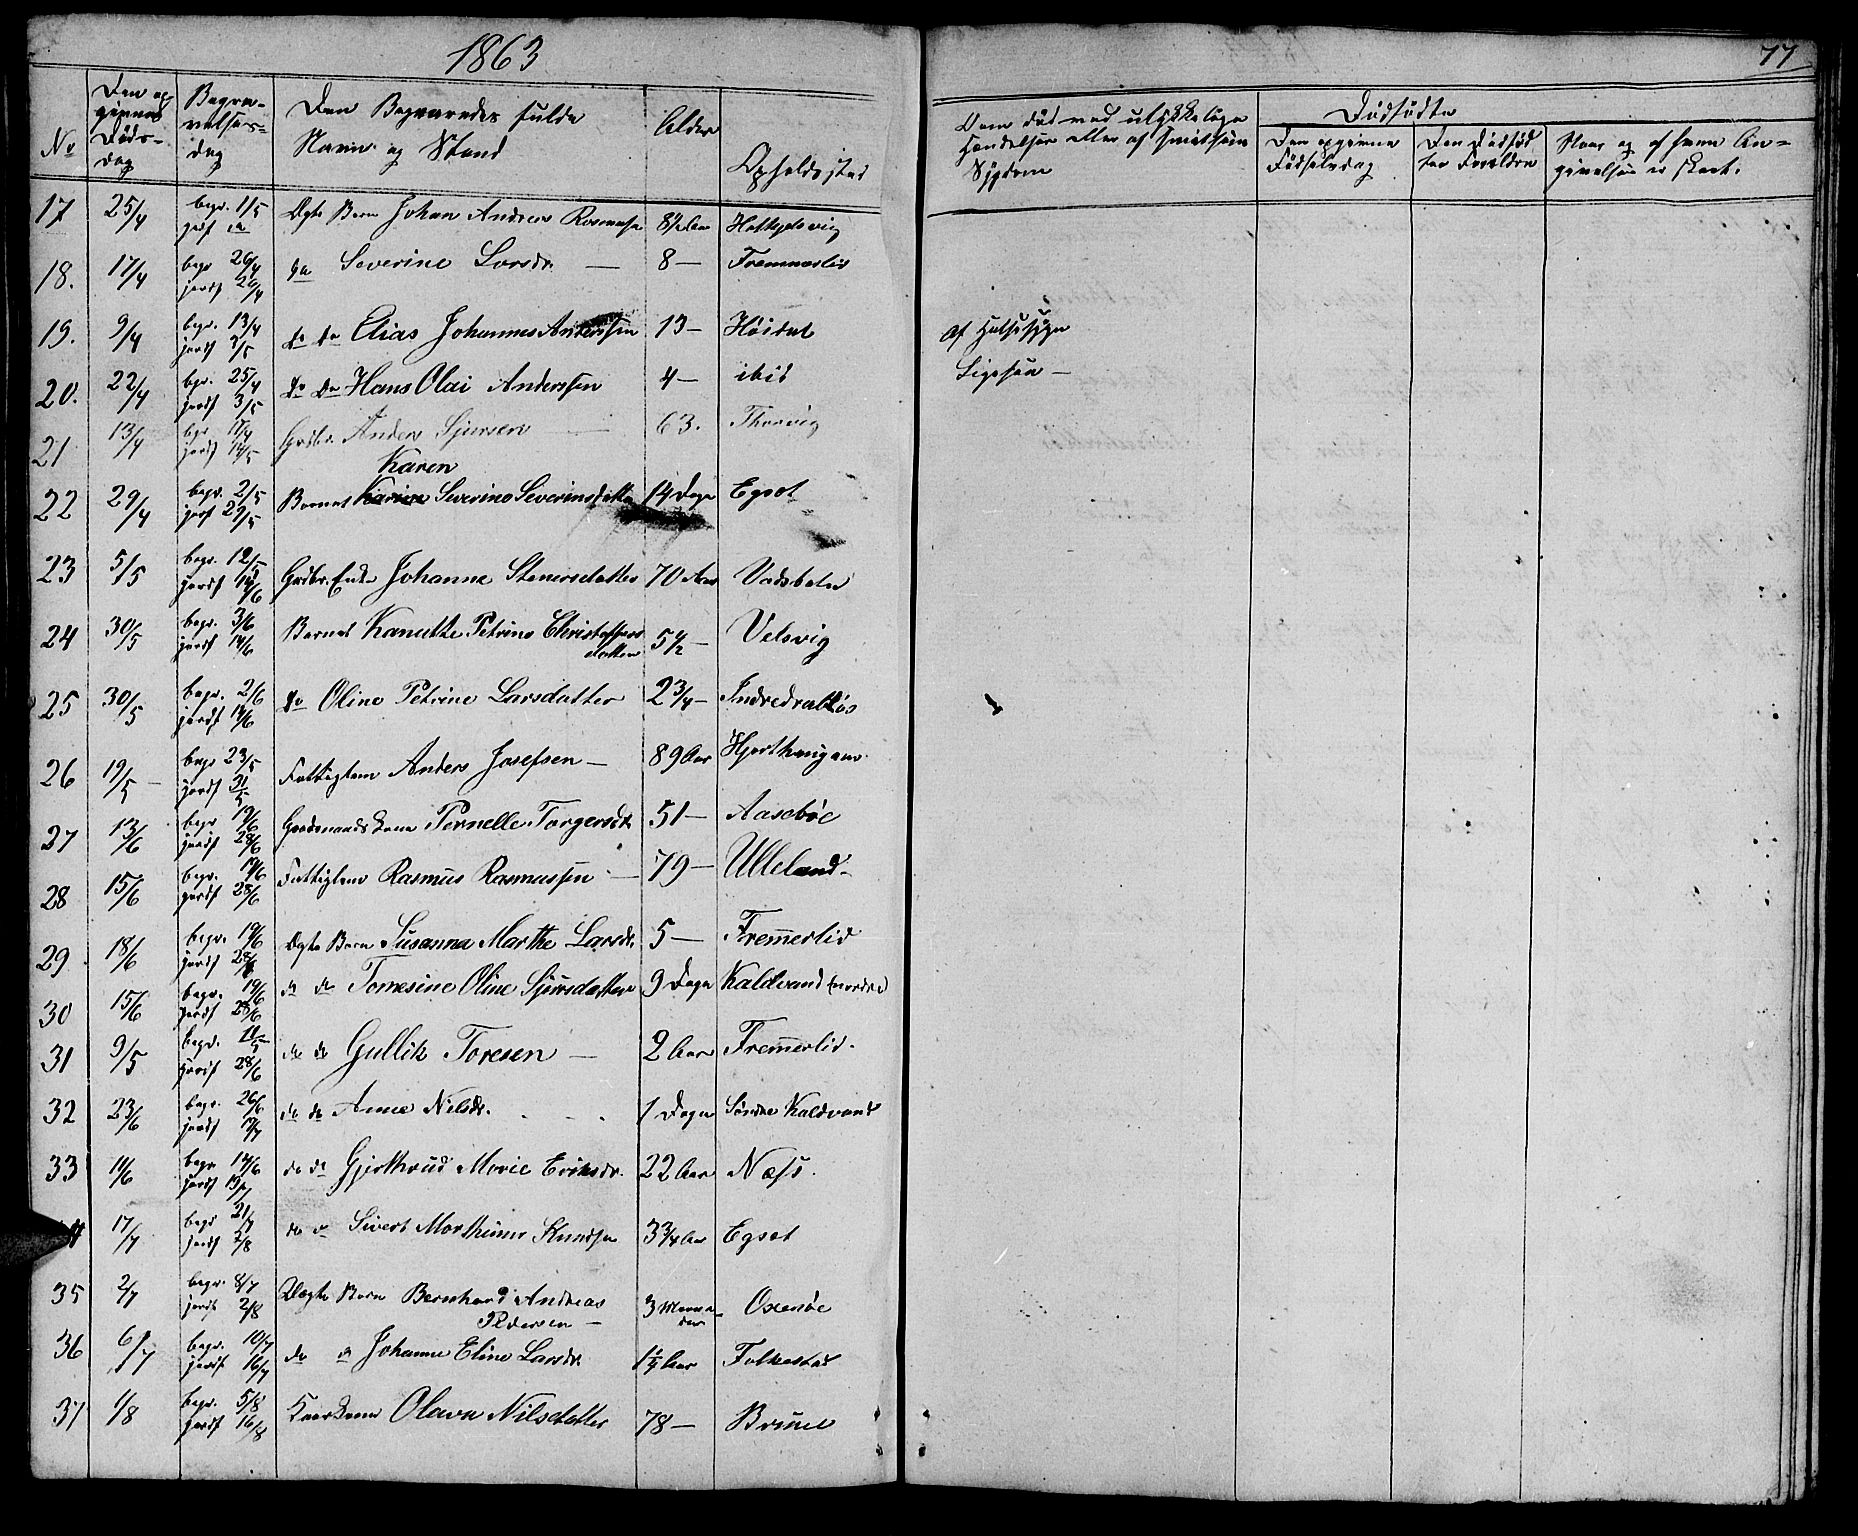 1863
77
No
Den op
givne
Døds-
dag
Begra-
velses-
dag
Den Begravedes fulde
Navn og Stand
Alder
Opholdssted
Dem død ved ulykkelige
Hændelser eller af smitsom
Sygdom
Dødfødte
Den opgivne
Fødselsdag
Den Dødfød
tes Forældre
Naar og af hvem An-
givelsen er skeet.
17 25/4 begr. 1/5 Ægte Barn Johan Andreas Rasmuss 8½ Aar
jordf do
18. 17/4 begr 26/4 do Severine Larsdr. — 8 — Fremmerlid
jordf 26/4
19. 9/4 begr. 13/4 do do Elias Johannes Anderssen 13 — Høidal Af Halssyge
jordf 3/5
20. 22/4 begr. 25/4 do do Hans Olai Anderssen 4 — ibid Ligesaa —
jordf 3/5
21 13/4 begr 17/4 Grdbr. Anders Sjursen — 63. Thorvig
jordf 14/5
Karen
22 29/4 begr. 2/5 Barnet Karine Severine Severinsdatter 14 Dage Egset
jordf 29/5
23 5/5 begr. 12/5 Grdbr. Enke Johanne Stenersdatter 70 Aar Vadsbeten
jordf 14/6
24 30/5 begr. 3/6 Barnet Kanutte Petrine Christoffers 5½ — Velsvig
jordf 14/6 datter
25 30/5 begr. 2/6 do Oline Petrine Larsdatter 2¾ — Indredrabløs
jordf 14/6
26 19/5 — begr 23/5 Fattiglem Anders Josefsen — 89 Aar Hjorthaugane
jordf 31/5
27 13/6 begr 19/6 Gaardmands Kone Pernelle Torgersdr 51 — Aasebøe
jordf 28/6
28 15/6 begr. 19/6 Fattiglem Rasmus Rasmussen — 79 — Ulleland —
jordf 28/6
29 18/6 begr. 19/6 Ægte Barn Susanna Marthe Larsdr. 5 — Fremmerlid
jordf 28/6
30 15/6 begr. 19/6 do do Tomesine Oline Sjursdatter 9 Dage Kaldvand (nordre)
jordf 28/6
31 9/5 begr. 11/5 do do Gullik Toresen — 2 Aar Fremmerlid.
jordf 28/6
32 23/6 begr. 26/6 do do Anne Nilsdr. 1 Dage Søndre Kaldvand
jordf 12/7
33 11/6 begr 14/6 do do Gjerthrud Marie Eriksdr. 22 Aar Næss.
jordf 13/7
17/7 begr 21/7 do do Sivert Marthinus Knudsen 3¾ Aar Egset
jordf 2/8
35 2/7 begr. 8/7 Ægte Barn Bernhard Andreas 3 Maane Oxenøe
jordf 2/8 Pedersen — der
36 6/7 begr. 10/7 do do Johanne Eline Larsdr 1¼ Aar Folkestad
jordf 16/7
37 1/8 begr. 5/8 Kaarkone Olava Nilsdatter 78 — Brune
jordf 16/8